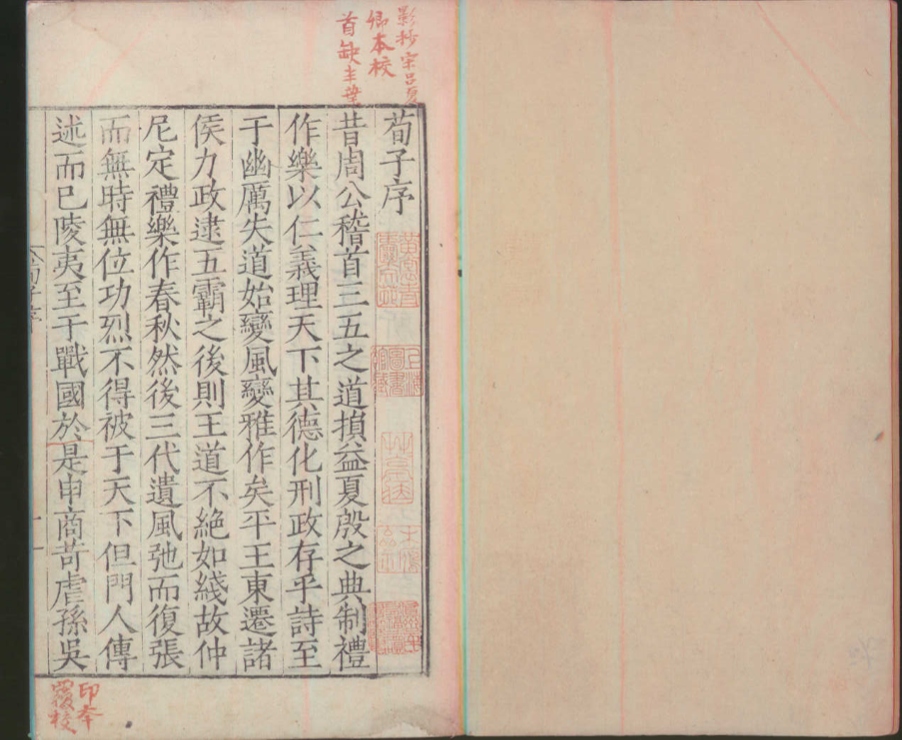 影抄宋呂夏
卿本校
首缺主葉
荀子序
昔周公稽首三五之道損益夏殷之典制禮
作樂以仁義理天下其德化刑政存乎詩至
于幽厲失道始變風變雅作矣平王東遷諸
侯力政逮五霸之後則王道不絶如綫故仲
尼定禮樂作春秋然後三代遺風弛而復張
而無時無位功烈不得被于天下但門人傳
述而已陵夷至于戰國於是申商苛虐孫吳
印本
覆校